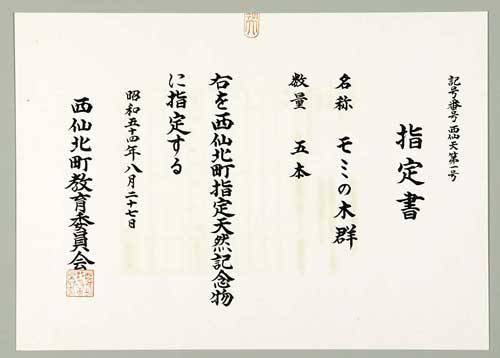 記号番号 西仙天第一号
指定書
名称 モミの木群
数量 五本
右を西仙北町指定天然記念物
に指定する
昭和五十四年八月二十七日
西仙北町教育委員会